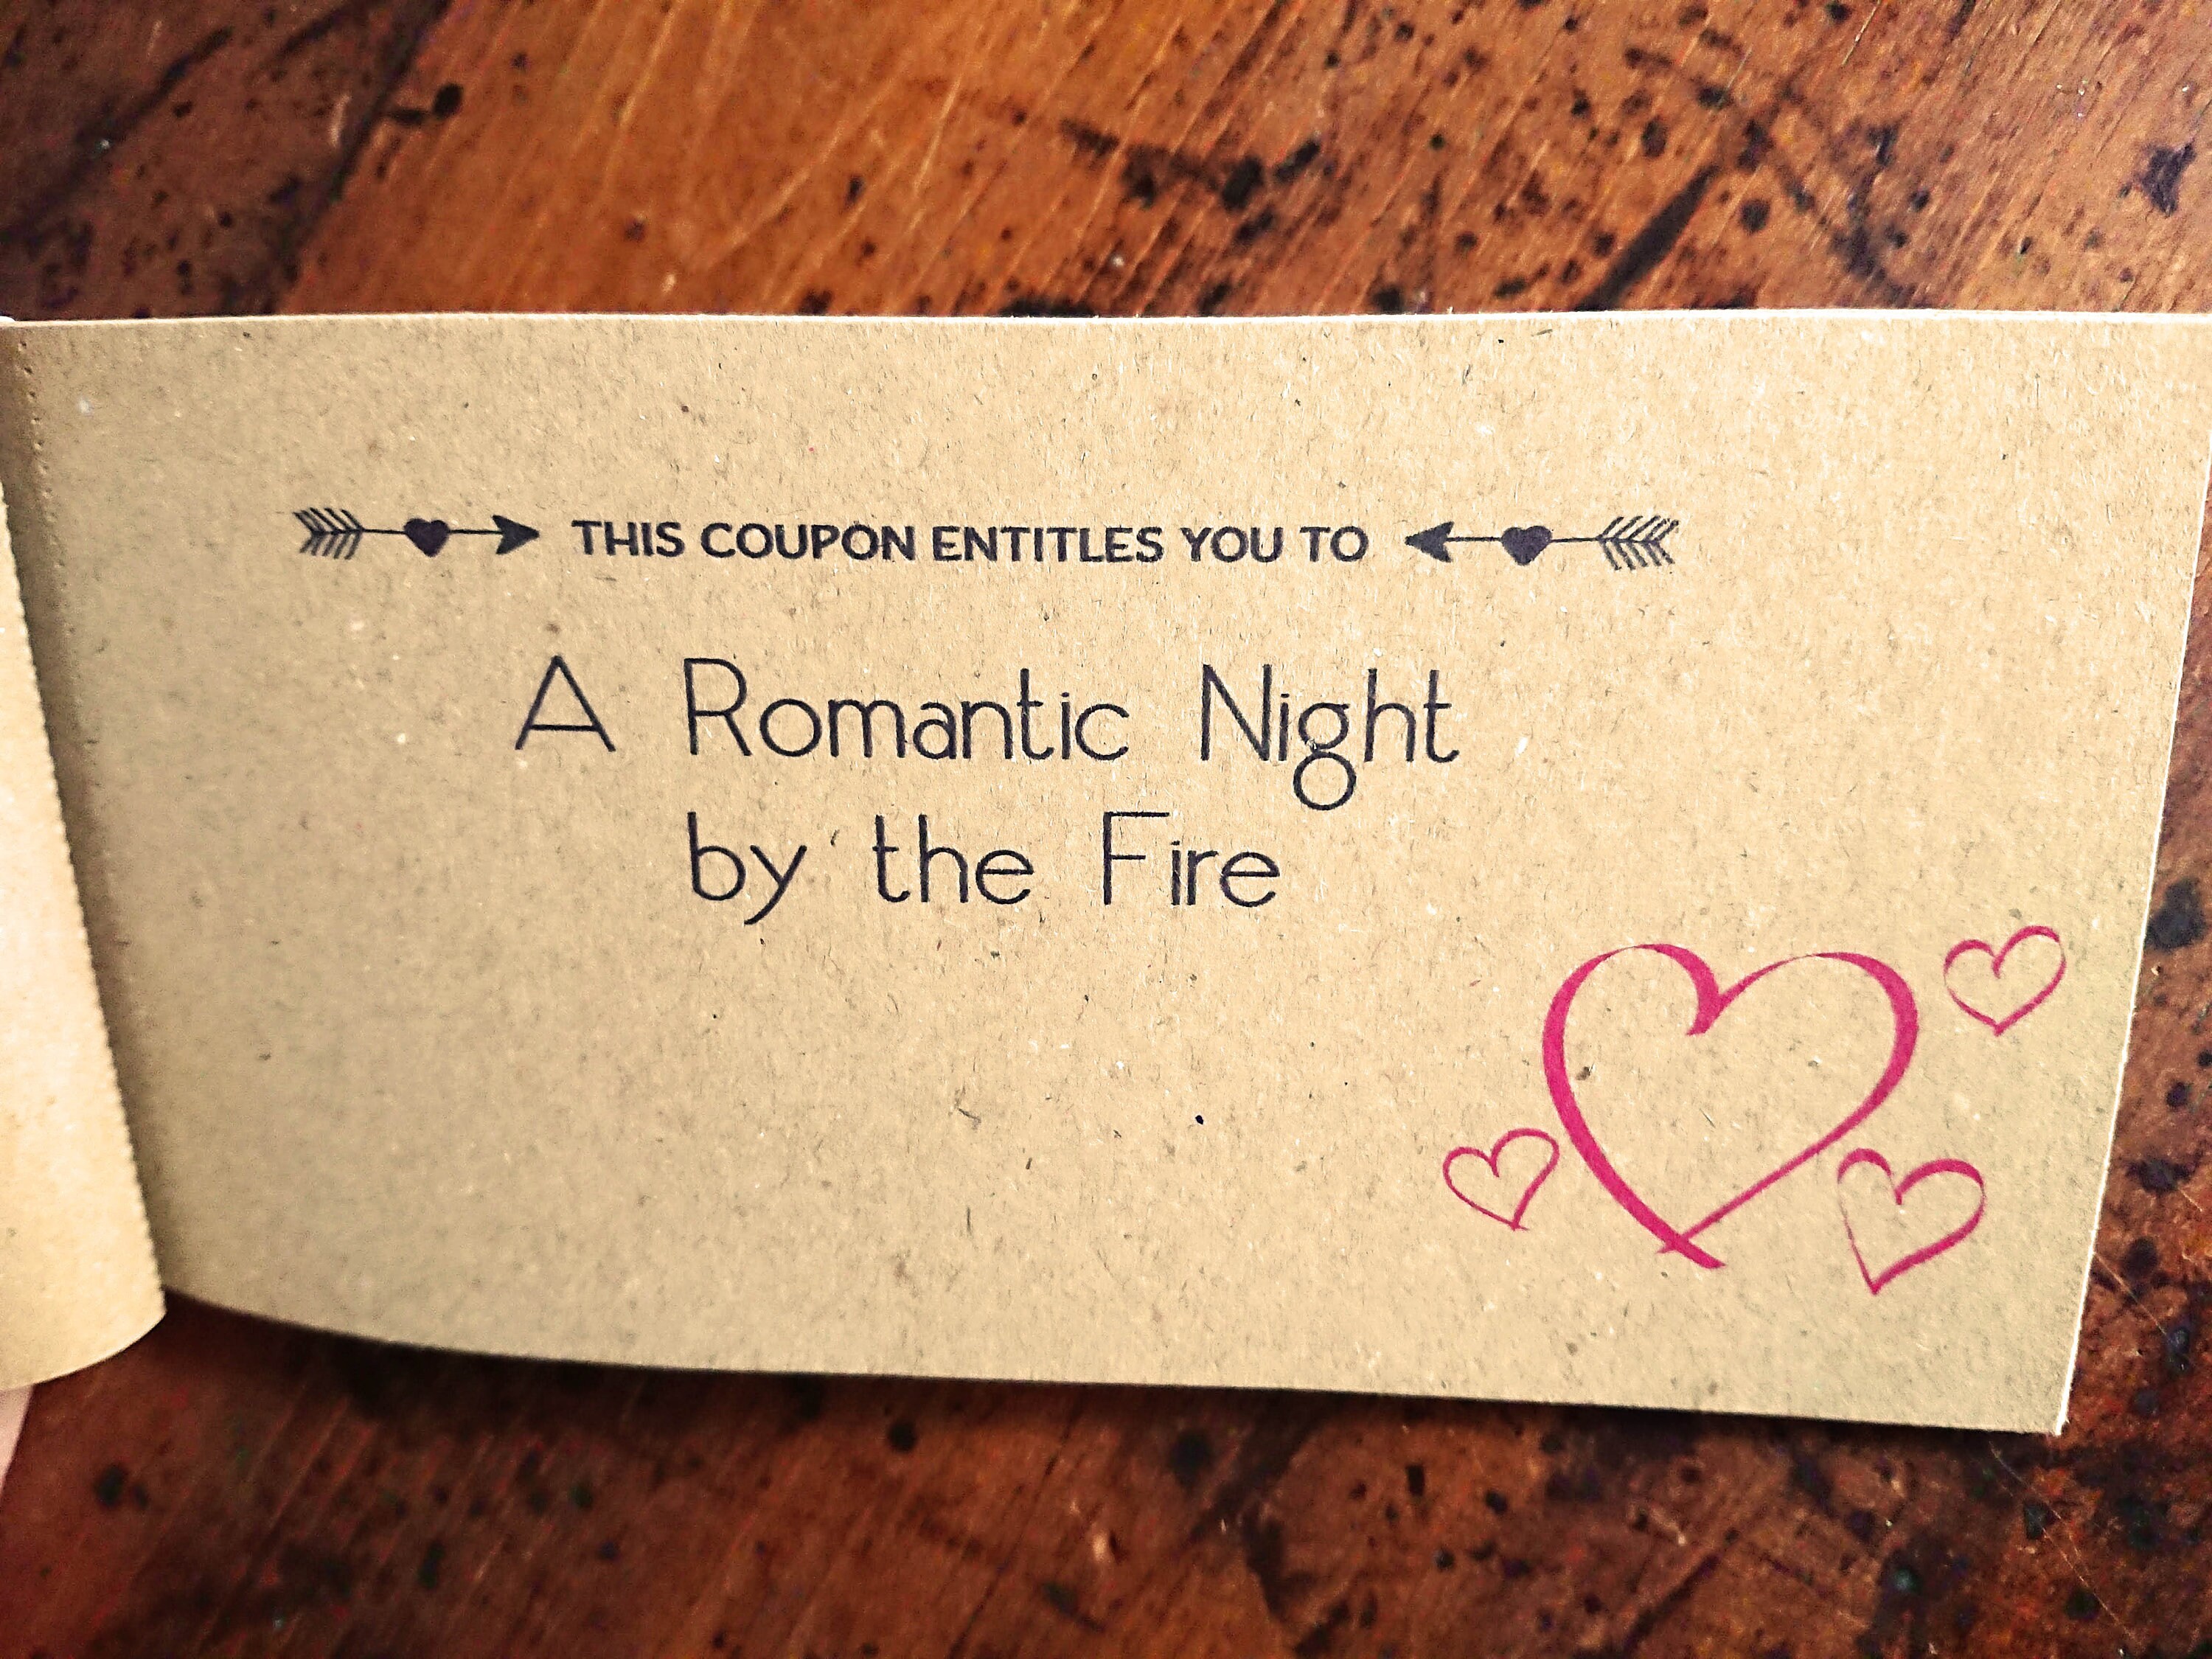 THIS COUPON ENTITLES YOU TO
A Romantic Night
by the Fire